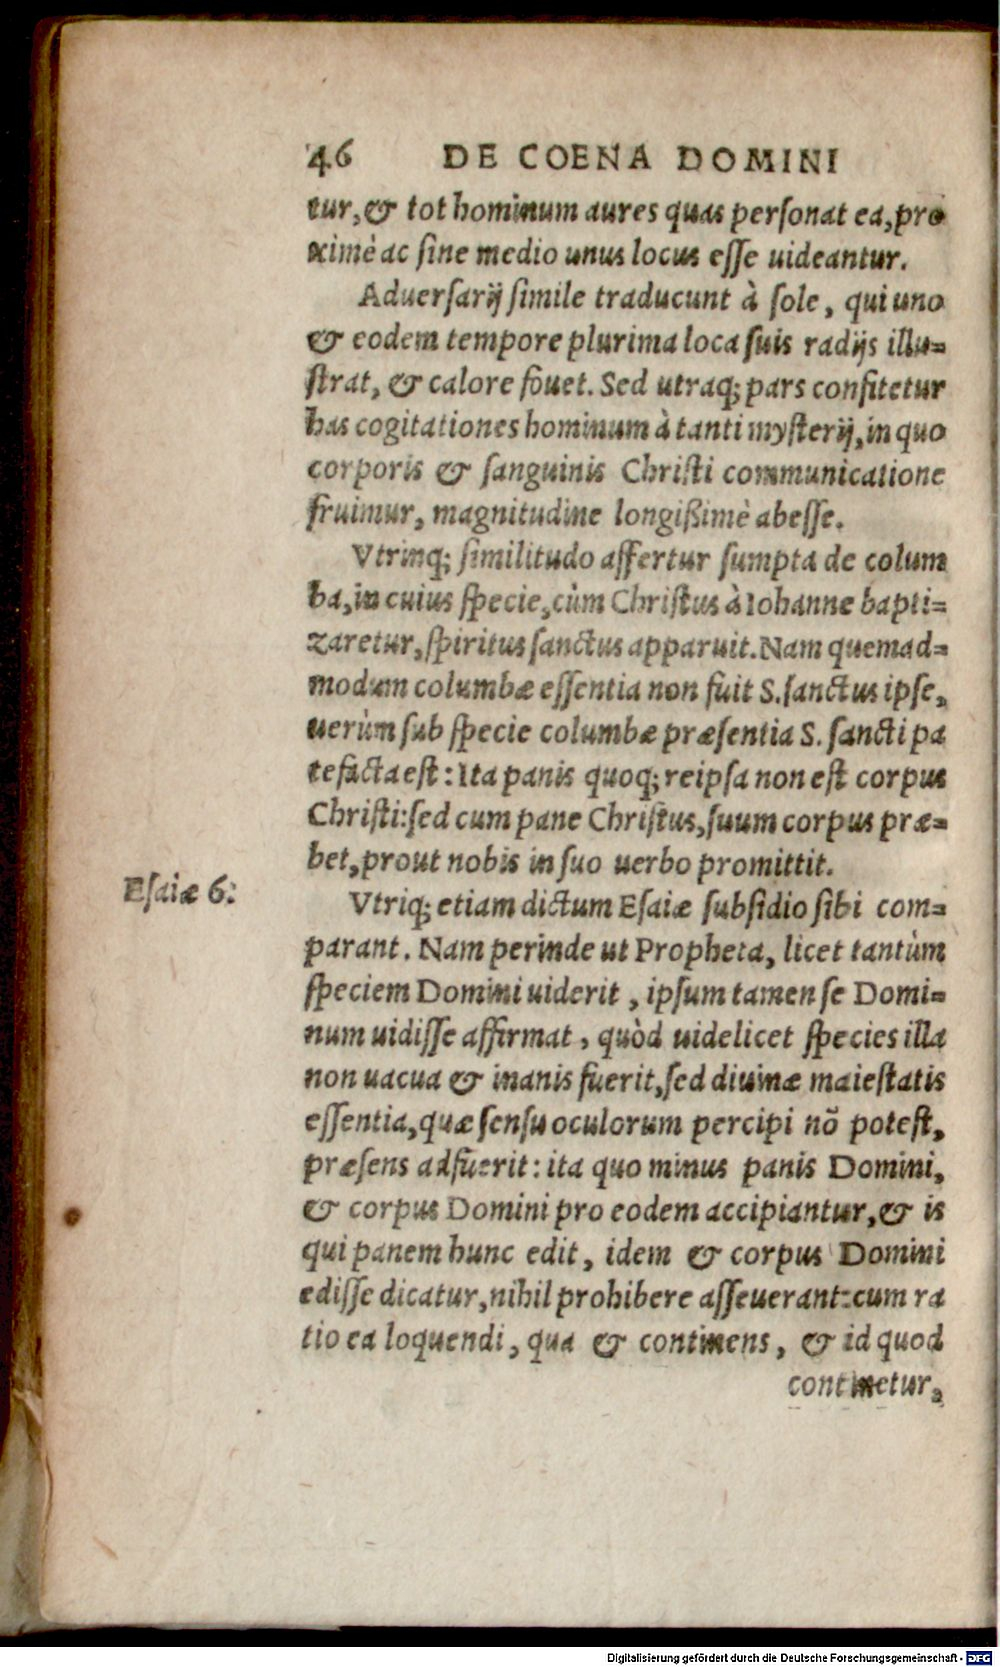 46 DE COENA DOMINI
tur, & tot hominum aures quas personat ea, pro
ximè ac sine medio unus locus esse uideantur.
Aduersarij simile traducunt à sole, qui uno
& eodem tempore plurima loca suis radijs illu=
strat, & calore fouet. Sed utraq; pars confitetur
has cogitationes hominum à tanti mysterij, in quo
corporis & sanguinis Christi communicatione
fruimur, magnitudine longißimè abesse.
Vtrinq; similitudo affertur sumpta de colum
ba, in cuius specie, cùm Christus à Iohanne bapti=
zaretur, spiritus sanctus apparuit. Nam quemad=
modum columbæ essentia non fuit S. sanctus ipse,
uerùm sub specie columbæ præsentia S. sancti pa
tefacta est: Ita panis quoq; reipsa non est corpus
Christi: sed cum pane Christus, suum corpus præ=
bet, prout nobis in suo uerbo promittit.
Esaiæ 6.
Vtriq; etiam dictum Esaiæ subsidio sibi com=
parant. Nam perinde ut Propheta, licet tantùm
speciem Domini uiderit, ipsum tamen se Domi=
num uidisse affirmat, quòd uidelicet species illa
non uacua & inanis fuerit, sed diuinæ maiestatis
essentia, quæ sensu oculorum percipi nõ potest,
præsens adfuerit: ita quo minus panis Domini,
& corpus Domini pro eodem accipiantur, & is
qui panem hunc edit, idem & corpus Domini
edisse dicatur, nihil prohibere asseuerant: cum ra
tio ea loquendi, qua & continens, & id quod
continetur,
Digitalisierung gefördert durch die Deutsche Forschungsgemeinschaft - DFG